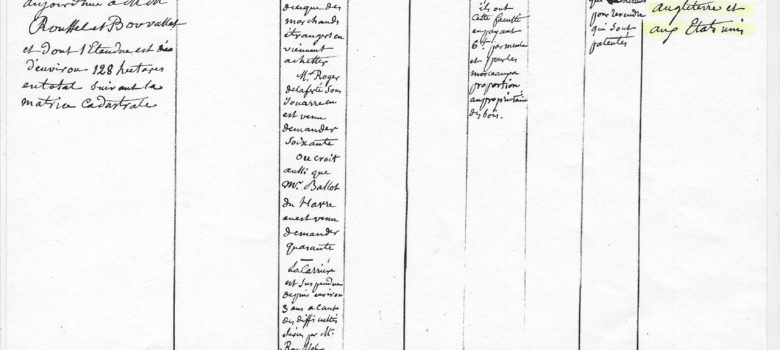 aujourd'hui à M M
Rousselet Bouvallot
et dont l'Etendue est de
d'environ 128 hectares
en total suivant la
matrice Cadastrale
des marchands
étrangers en
viennent
acheter
Mr. Roger
delaferté Sous
Jouarre en
est venu
demander
soixante
on croit
aussi que
Mr. Ballot
du Havre
en est venu
demander
quarante
La Carrière
est suspendue
depuis environ
3 ans a cause
des difficultés
par Mr.
ils ont
cette faculté
en payant
6 f. par meule
et
morceaux a
proportion
au propriétaire
des bois.
pour revendre
qui sont
patentés
angleterre et
aux Etats unis